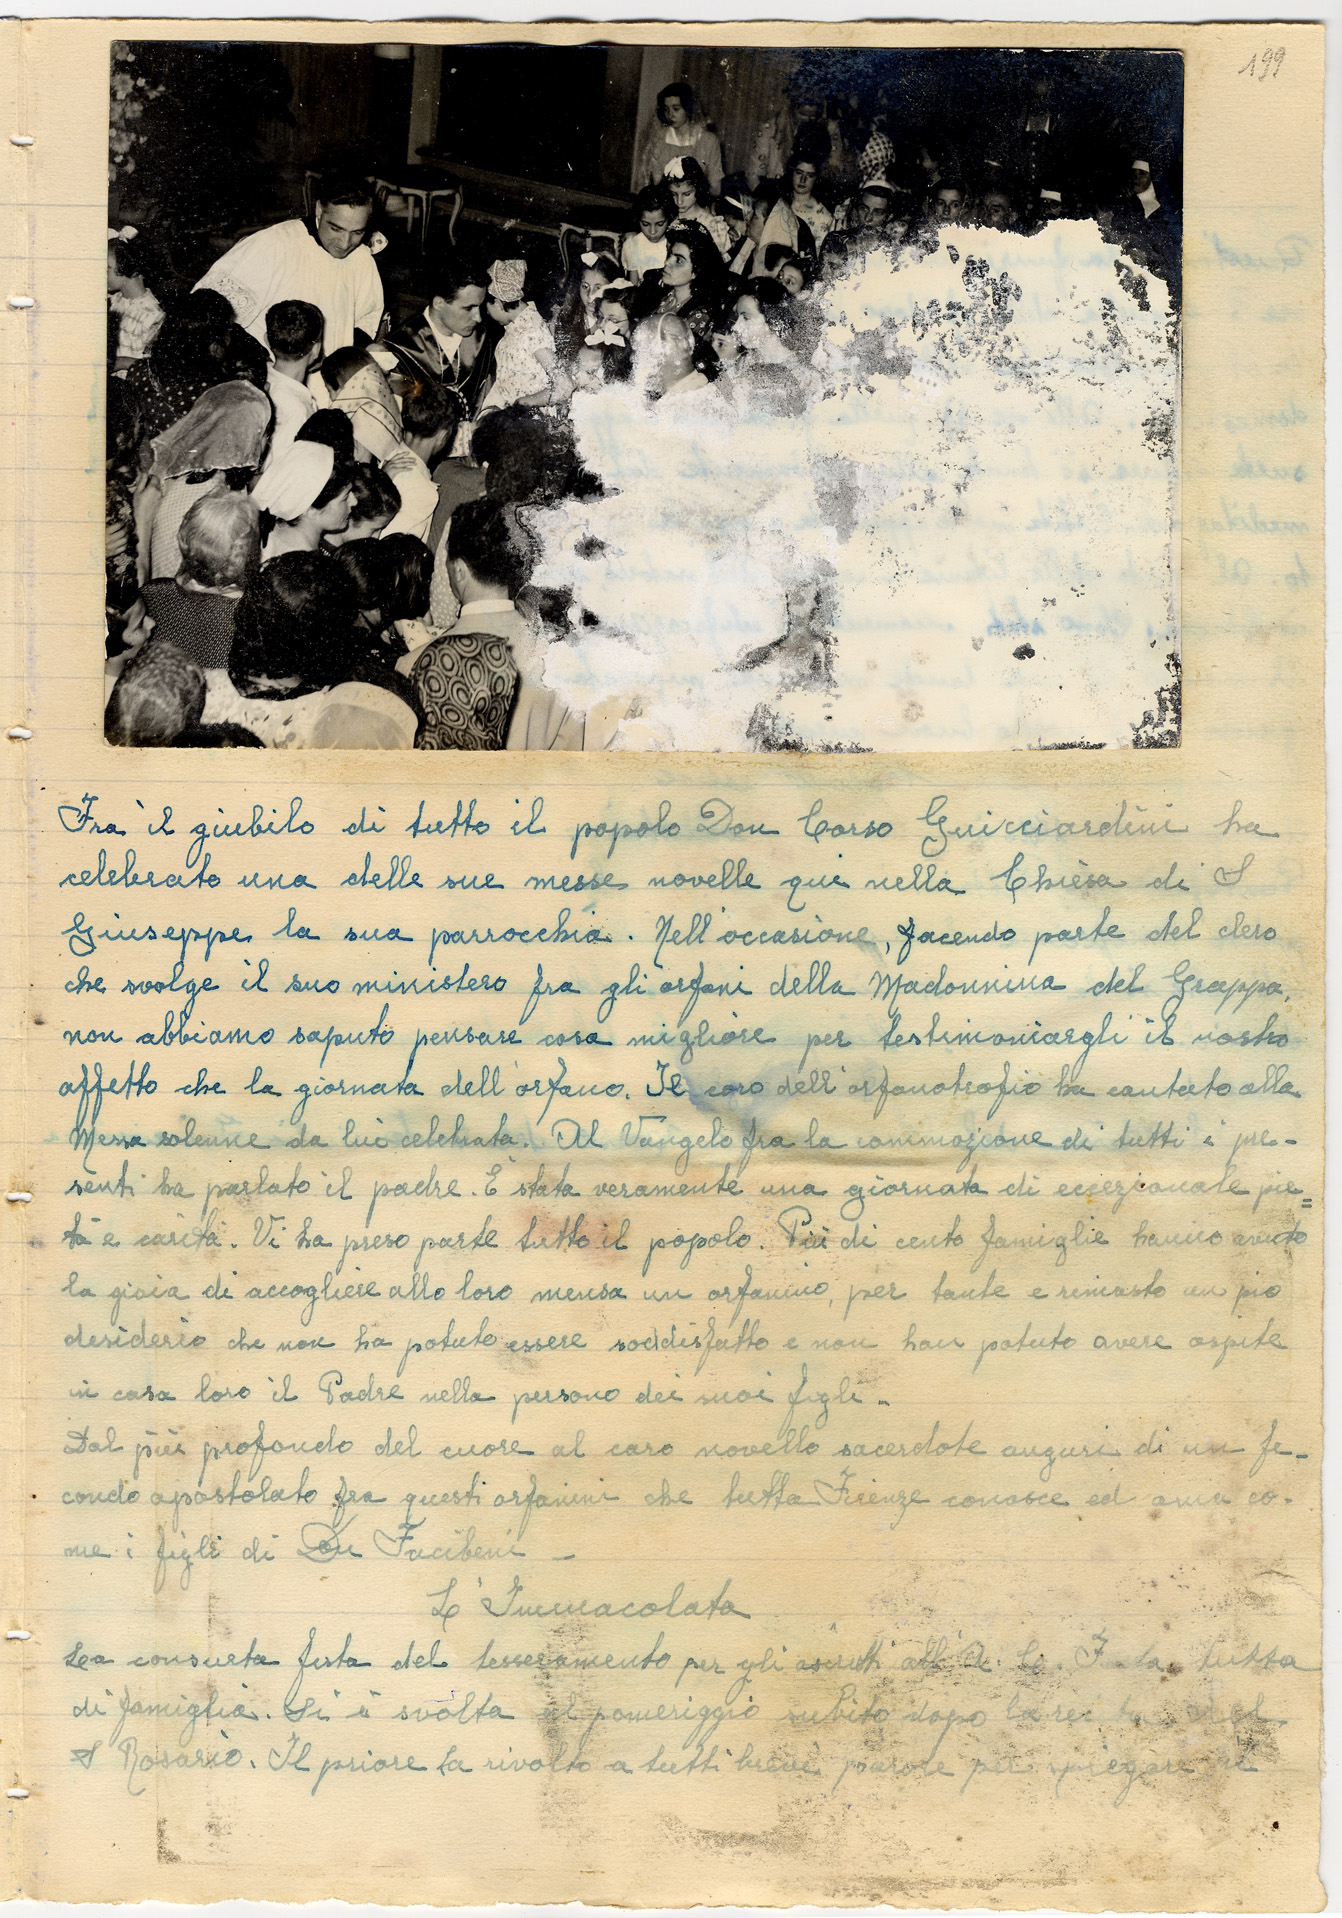 199
Fra il giubilo di tutto il popolo Don Corso Guicciardini ha
celebrato una delle sue messe novelle qui nella Chiesa di S
Giuseppe la sua parrocchia. Nell'occasione, facendo parte del clero
che svolge il suo ministero fra gli orfani della Madonnina del Grappa,
non abbiamo saputo pensare cosa migliore per testimoniargli il nostro
affetto che la giornata dell'orfano. Il coro dell'orfanotrofio ha cantato alla
Messa solenne da lui celebrata. Al Vangelo fra la commozione di tutti i pre-
senti ha parlato il padre. È stata veramente una giornata di eccezionale pie=
tà e carità. Vi ha preso parte tutto il popolo. Più di cento famiglie hanno avuto
la gioia di accogliere alla loro mensa un orfanino, per tante e rimasto un pio
desiderio che non ha potuto essere soddisfatto e non han potuto avere ospite
in casa loro il Padre nella persona dei suoi figli -
Dal più profondo del cuore al caro novello sacerdote auguri di un fe-
condo apostolato fra questi orfanini che tutta Firenze conosce ed ama co-
me i figli di Don Facibeni -
L'Immacolata
La consueta festa del tesseramento per gli iscritti all'A. C. I. tutta
di famiglia. Si è svolta al pomeriggio subito dopo la del
S Rosario. Il priore ha rivolto a tutti brevi parole per spiegare il